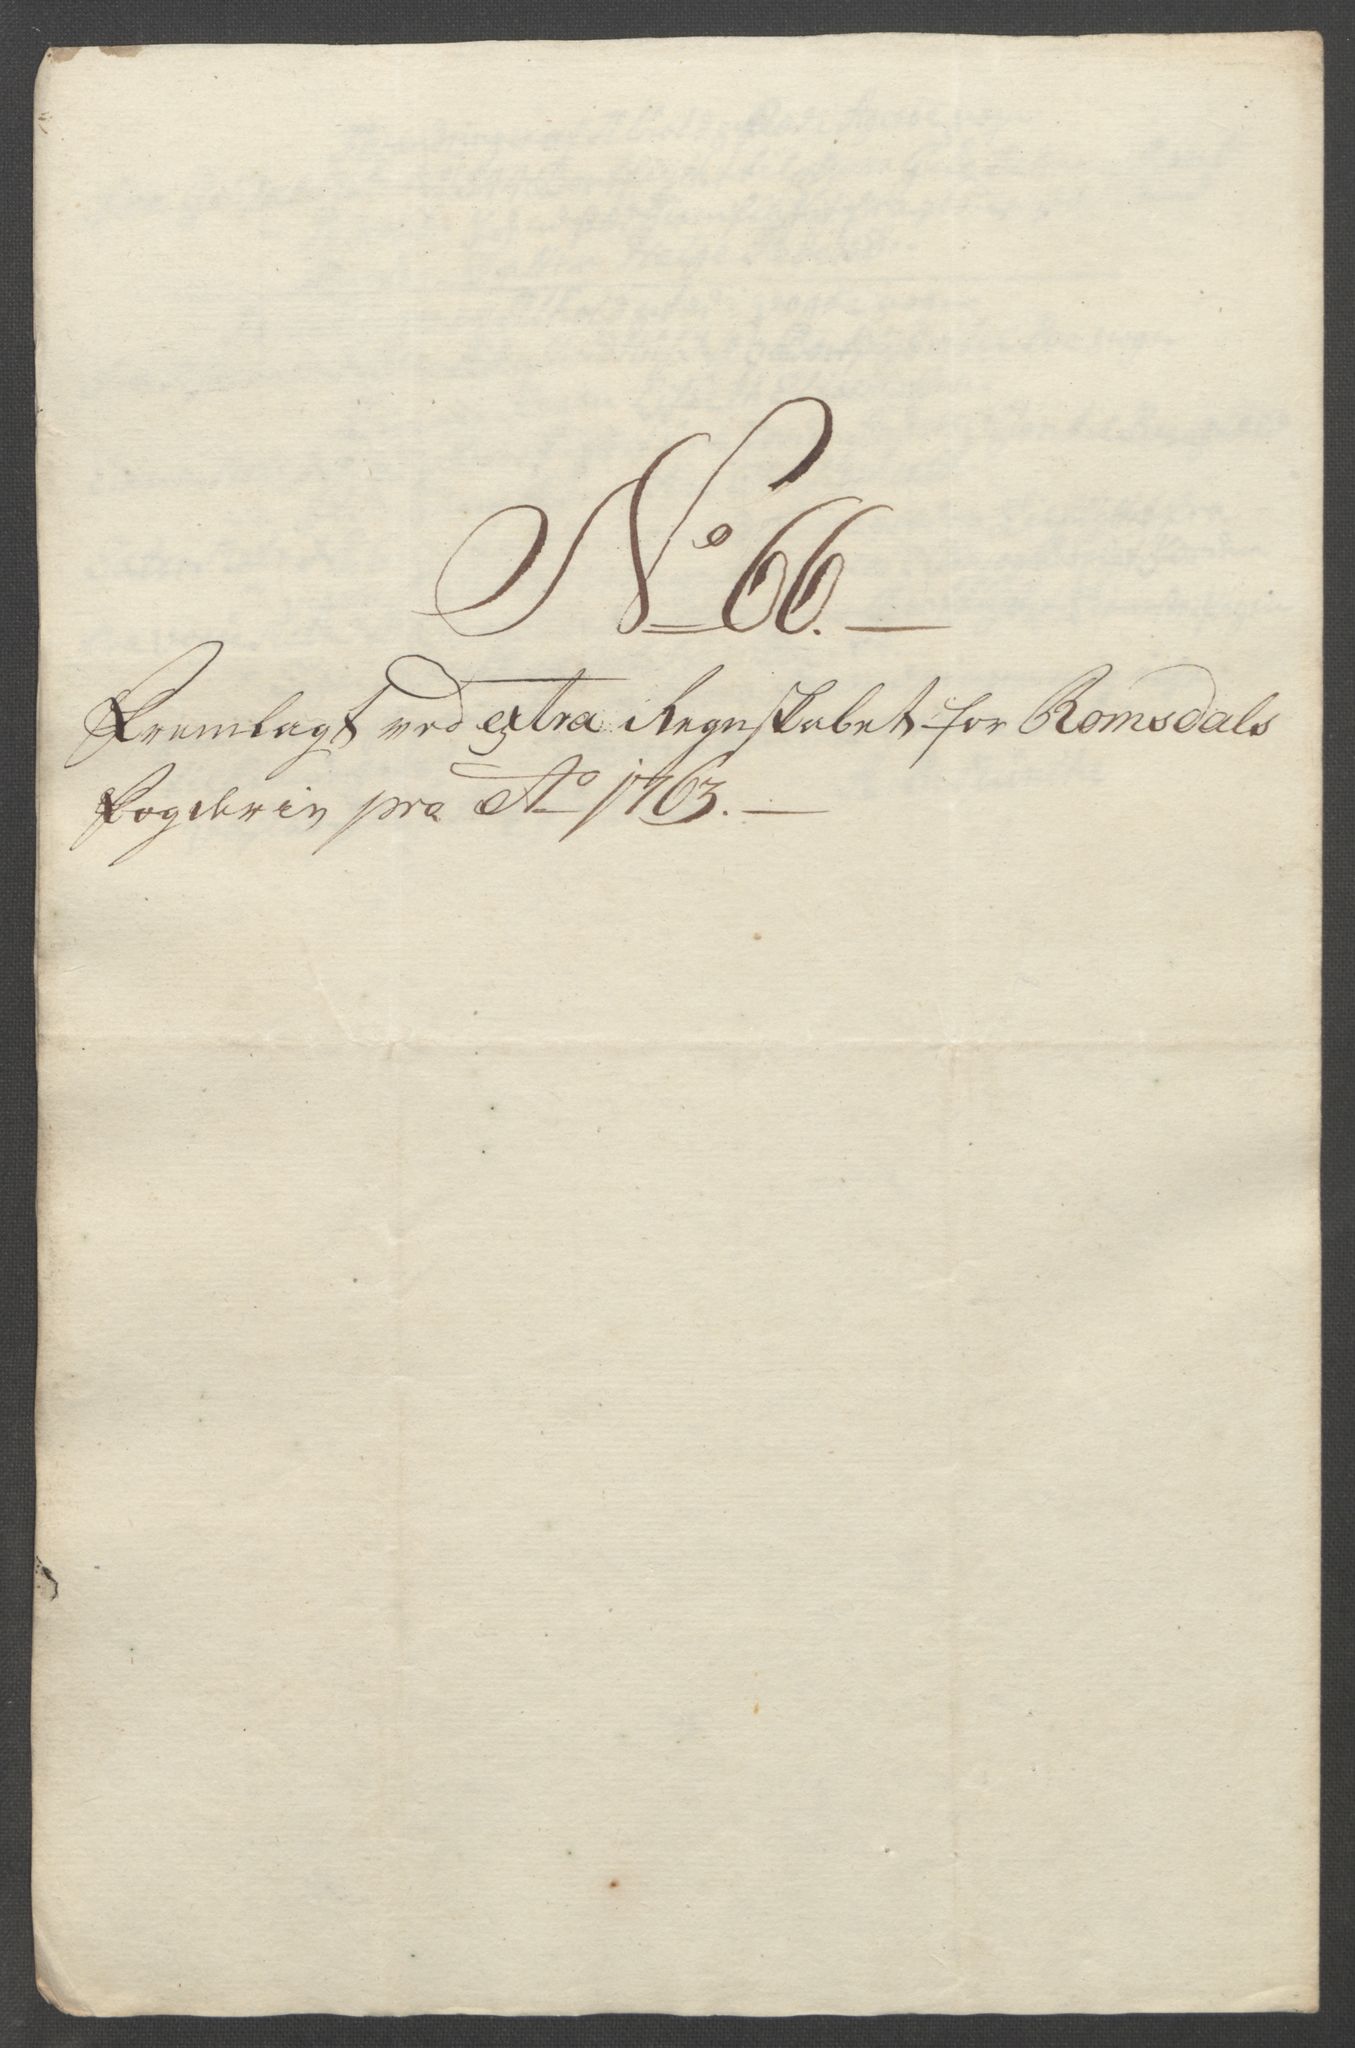 No 66.
Fremlagt ved extra Regnskabet for Romsdals
Fogderie pro Ao 1763.